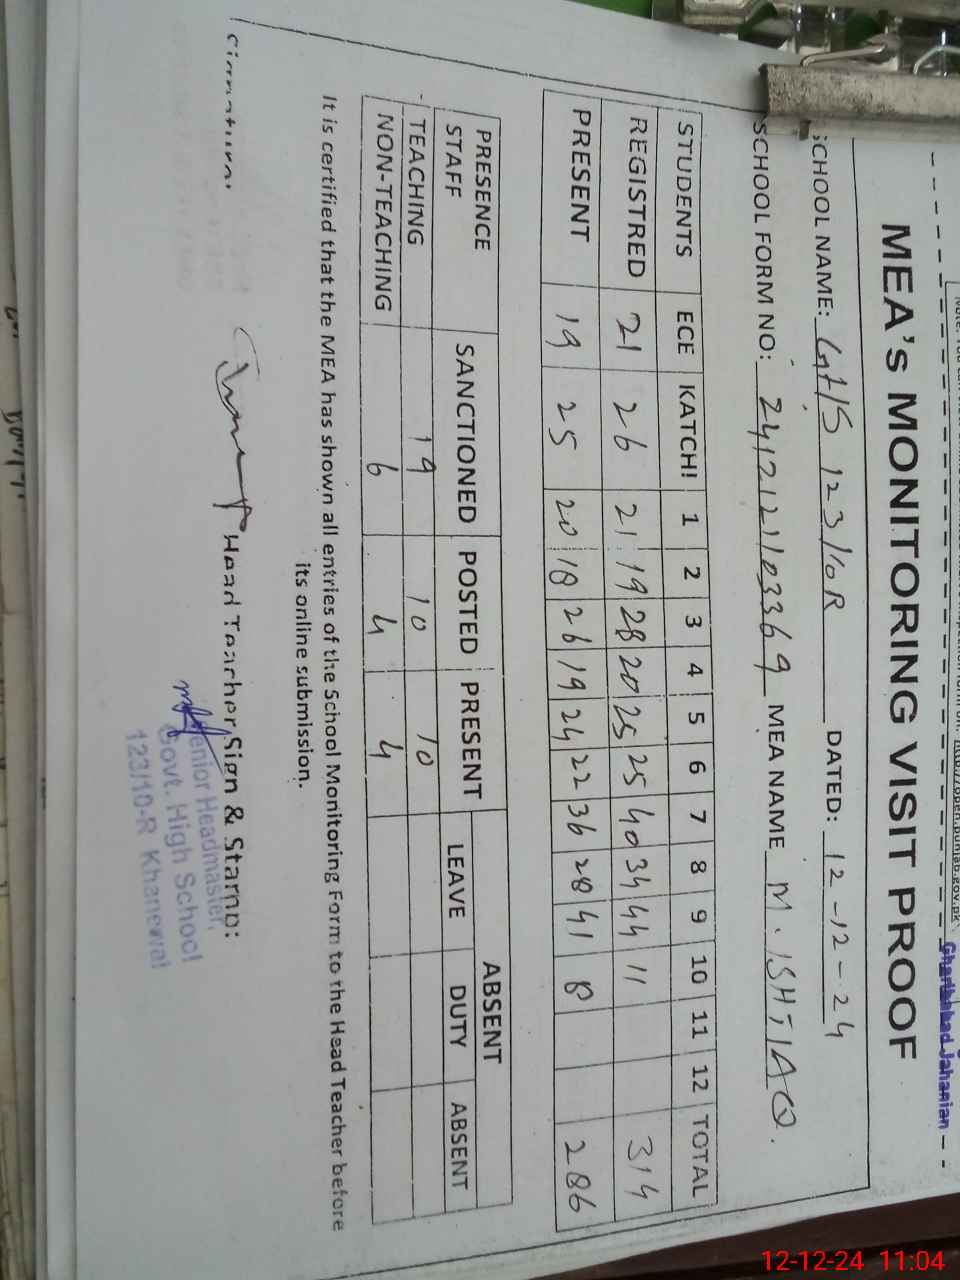 Gharibabad Jahanian
MEA's MONITORING VISIT PROOF
SCHOOL NAME: GHS 123/10R DATED: 12-12-24
SCHOOL FORM NO: 24212103369 MEA NAME M. ISHTIAQ.
STUDENTS ECE KATCHI 1 2 3 4 5 6 7 8 9 10 11 12 TOTAL
REGISTRED 21 26 21 19 28 20 25 25 40 34 44 11 314
PRESENT 19 25 20 18 26 19 24 22 36 28 41 8 286
PRESENCE ABSENT
STAFF SANCTIONED POSTED PRESENT LEAVE DUTY ABSENT
TEACHING 19 10 10
NON-TEACHING 6 4 4
It is certified that the MEA has shown all entries of the School Monitoring Form to the Head Teacher before
its online submission.
Signature: Head Teacher Sign & Stamp:
Senior Headmaster,
Govt. High School
123/10-R Khanewal
12-12-24 11:04